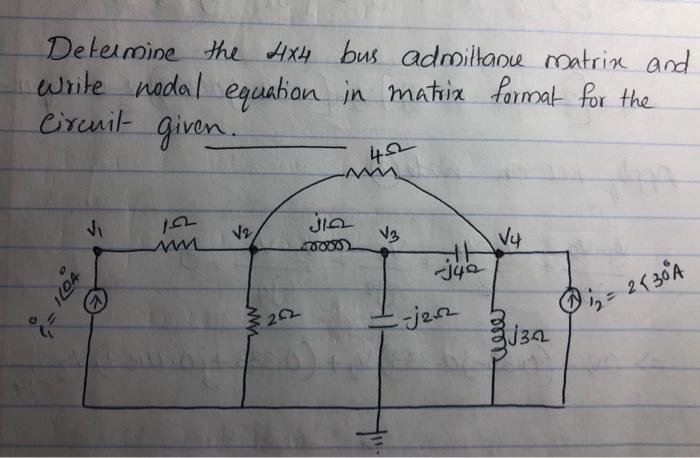 Determine the 4x4 bus admittance matrix and
write nodal equation in matrix format for the
circuit given.
4Ω
V1
1Ω
V2
j1Ω
V3
-j4Ω
V4
i1 = 1∠0°A
2Ω
-j2Ω
j3Ω
i2 = 2<30°A